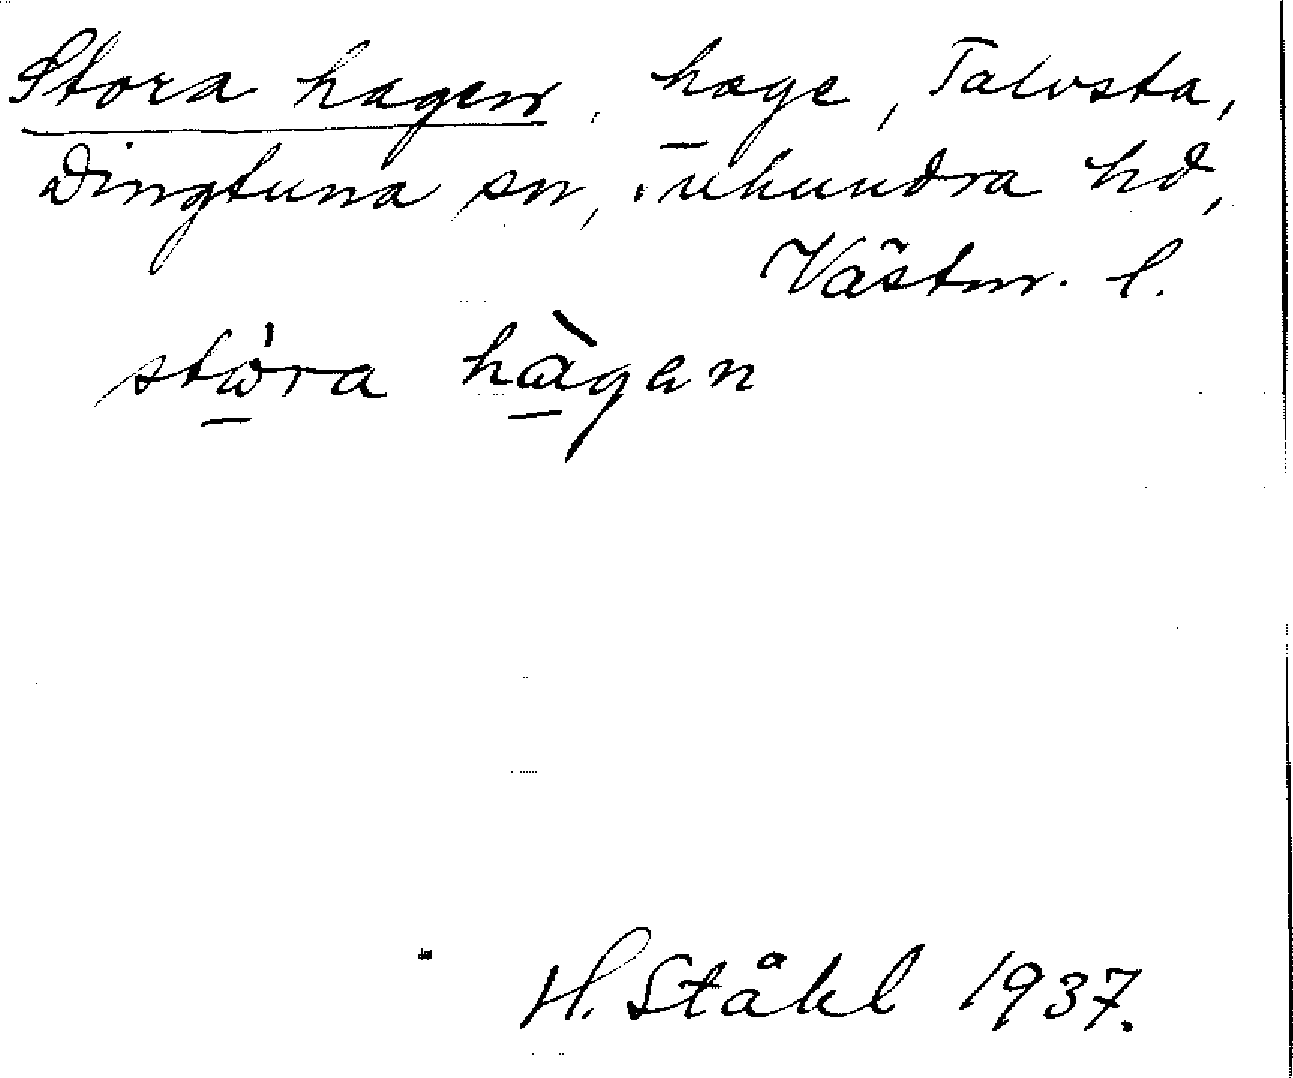 Stora hagen, hage, Talvsta,
Dingtuna sn, Tuhundra hd,
Västm. l.
stὼra hàgan
H. Ståhl 1937.